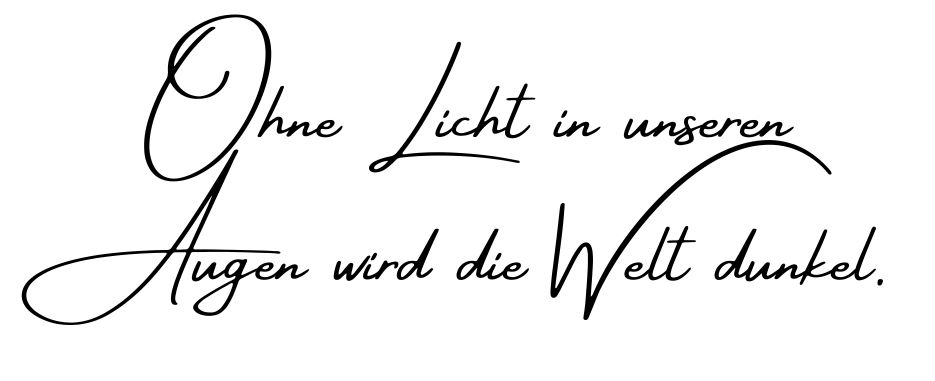 Ohne Licht in unseren
Augen wird die Welt dunkel.